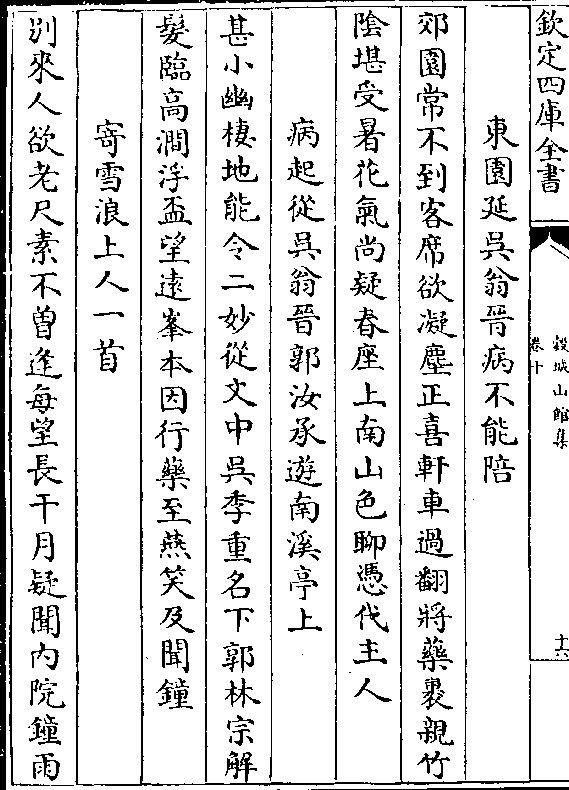 欽定四庫全書
穀城山館集
卷十
十六
東園延吳翁晉病不能陪
郊園常不到客席欲凝塵正喜軒車過翻將藥裹親竹
陰堪受暑花氣尚疑春座上南山色聊憑代主人
病起從吳翁晉郭汝承遊南溪亭上
甚小幽棲地能令二妙從文中吳季重名下郭林宗解
髮臨高澗浮盃望遠峯本因行藥至燕笑及聞鐘
寄雪浪上人一首
別來人欲老尺素不曽逢每望長干月疑聞內院鐘雨